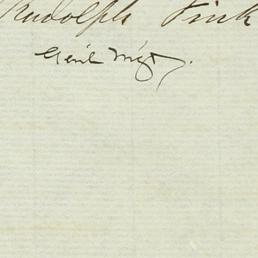 Rudolph Fink
Genl Mgr.